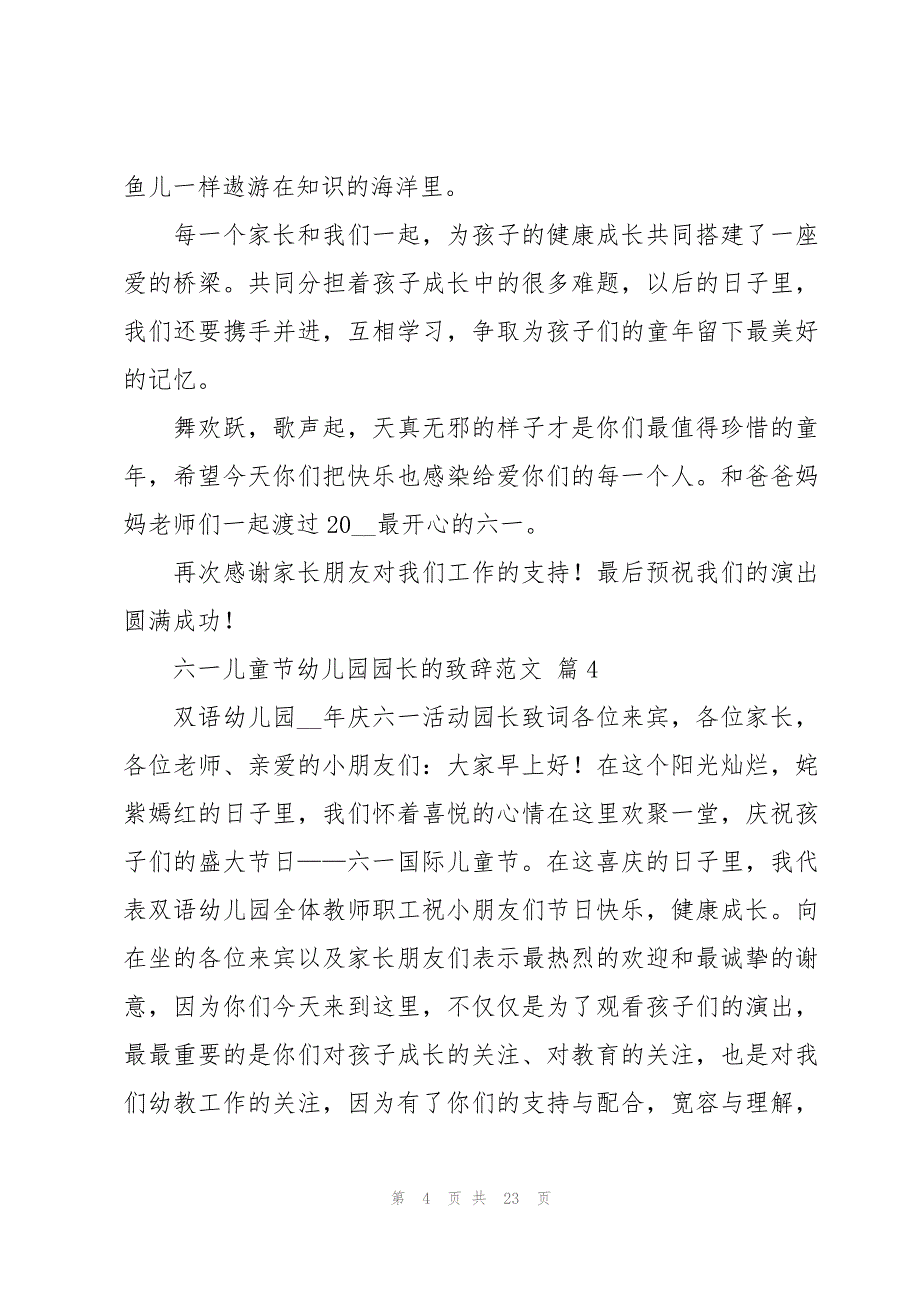 鱼儿一样遨游在知识的海洋里。
每一个家长和我们一起，为孩子的健康成长共同搭建了一座
爱的桥梁。共同分担着孩子成长中的很多难题，以后的日子里，
我们还要携手并进，互相学习，争取为孩子们的童年留下最美好
的记忆。
舞欢跃，歌声起，天真无邪的样子才是你们最值得珍惜的童
年，希望今天你们把快乐也感染给爱你们的每一个人。和爸爸妈
妈老师们一起渡过 20__最开心的六一。
再次感谢家长朋友对我们工作的支持！最后预祝我们的演出
圆满成功！
六一儿童节幼儿园园长的致辞范文 篇 4
双语幼儿园__年庆六一活动园长致词各位来宾，各位家长，
各位老师、亲爱的小朋友们：大家早上好！在这个阳光灿烂，姹
紫嫣红的日子里，我们怀着喜悦的心情在这里欢聚一堂，庆祝孩
子们的盛大节日——六一国际儿童节。在这喜庆的日子里，我代
表双语幼儿园全体教师职工祝小朋友们节日快乐，健康成长。向
在坐的各位来宾以及家长朋友们表示最热烈的欢迎和最诚挚的谢
意，因为你们今天来到这里，不仅仅是为了观看孩子们的演出，
最最重要的是你们对孩子成长的关注、对教育的关注，也是对我
们幼教工作的关注，因为有了你们的支持与配合，宽容与理解，
第 4 页 共 23 页